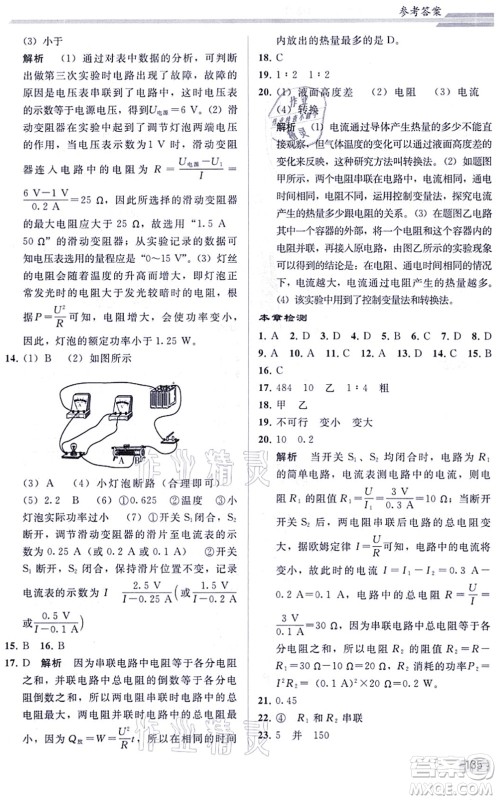 参考答案
(3) 小于
解析 (1) 通过对表中数据的分析，可判断
出做第三次实验时电路出现故障，故障的原
因是电压表串联到了电路中，电压表的示数
等于电源电压，所以U电源=6 V. (2) 滑
动变阻器在实验中起到了调节灯泡两端电压
的作用，当电压表的示数为1 V 时，滑动变
阻器连入电路中的电阻 R=(U电源-U1)/I=
(6 V-1 V)/0.2 A=25 Ω，又因为在实验中滑动变阻器
的最大电阻应大于 25 Ω，故选用“1.5 A
50 Ω”的滑动变阻器；从实验记录的数据可
知电压表选用的量程应为“0~15 V”. (3) 灯丝
的电阻随着温度的升高而增大，即灯泡正
常发光时的电阻比电压为5 V时电阻还要大，
根据P=U²/R可知，电阻增大，会使功率变
小，故灯泡的额定功率小于 1.25 W.
14. (1) B (2) 如图所示
A B
(3) A (4) 小灯泡断路（合理即可）
(5) 2.2 B (6) ①0.625 ②温度 ③小
灯泡实际功率过小 (7) ①闭合开关S1，S2
断开，调节滑动变阻器的滑片至电流表的示
数为 I (0.2 A或0.1 A) ②断开开关S1，闭
合开关S2，保持滑片位置不变，记录
电流表的示数为 I′ 2.5 V/(I-0.2 A) (或 1.5 V/(I-0.1 A)
或 0.5 V/(I-0.1 A))
15. B 16. B
17. D 解析 因为串联电路中电阻等于各分电阻
之和，并联电路中总电阻的倒数等于各分电
阻的倒数之和，所以两电阻丝串联时电路的总
电阻最大，两电阻丝并联时电路的总电阻最
小；因为 Q放=W=U²/R t，所以，电压和通电时
间一定时，两电阻丝并联时总电阻最小，电路
内放出的热量最多的是 D.
18. C
19. 1∶2 1∶2
20. (1) 液面高度差 (2) 电阻 (3) 电流
(4) 转换
解析 (1) 电流通过导体产生热量的多少不能直
接观察，但气体温度的变化可以通过液面高度差
的变化来反映，这种研究方法叫转换法. (2) 如题图
甲所示，在电流、通电时间相同的情况下，电流
产生的热量多少跟电阻大小有关. (3) 题图乙电
路研究的是电流产生的热量跟电流的关系，在电
阻、通电时间相同时，电流越大，电流产生的热量
越多. (4) 该实验中用到了控制变量法和转换法.
本章检测
1. A 2. D 3. D 4. B 5. C 6. D 7. D 8. D
9. A 10. A 11. C 12. A 13. C 14. B 15. A
16. C
17. 484 10 乙 1∶4 粗
18. 甲 乙
19. 不可行 变小 变大
20. 10 0.2
解析 当开关 S1、S2 均闭合时，电路中只有电
阻 R1 连入电路，电压表测电路中的电源电压，
电流表测电路中的电流，故电源电压为
3 V，电阻 R1 的阻值 R1=U/I1=3 V/0.3 A=10 Ω；当
S1 闭合、S2 断开时，两电阻串联后接入电路
中，电源电压不变，由于串联电路的总电阻变
大，据欧姆定律I=U/R可知，此时电路中的电流将
变小，故此时电流 I=I1-I2=0.3 A-
0.2 A=0.1 A，电路中的总电阻 R总=U/I=
3 V/0.1 A=30 Ω；因为串联电路的总电阻等于各
分电阻之和，故电阻 R2=R总-R1=30 Ω-
10 Ω=20 Ω，电阻 R2 消耗的功率 P2=
I²R2=(0.1 A)²×20 Ω=0.2 W.
21. 0.45
22. ④ R1 和 R2 串联
23. 5 并 150
135
作业精灵
作业精灵
答案圈